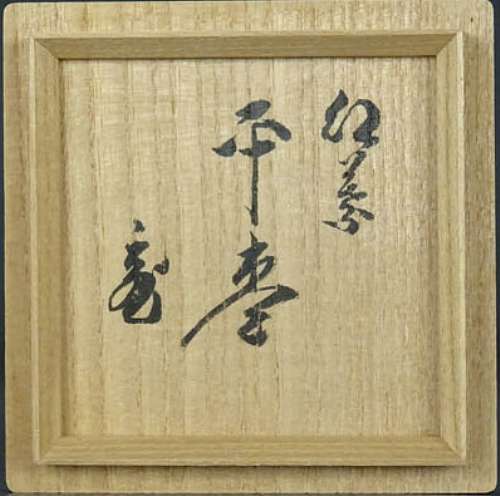 紅葉
平棗